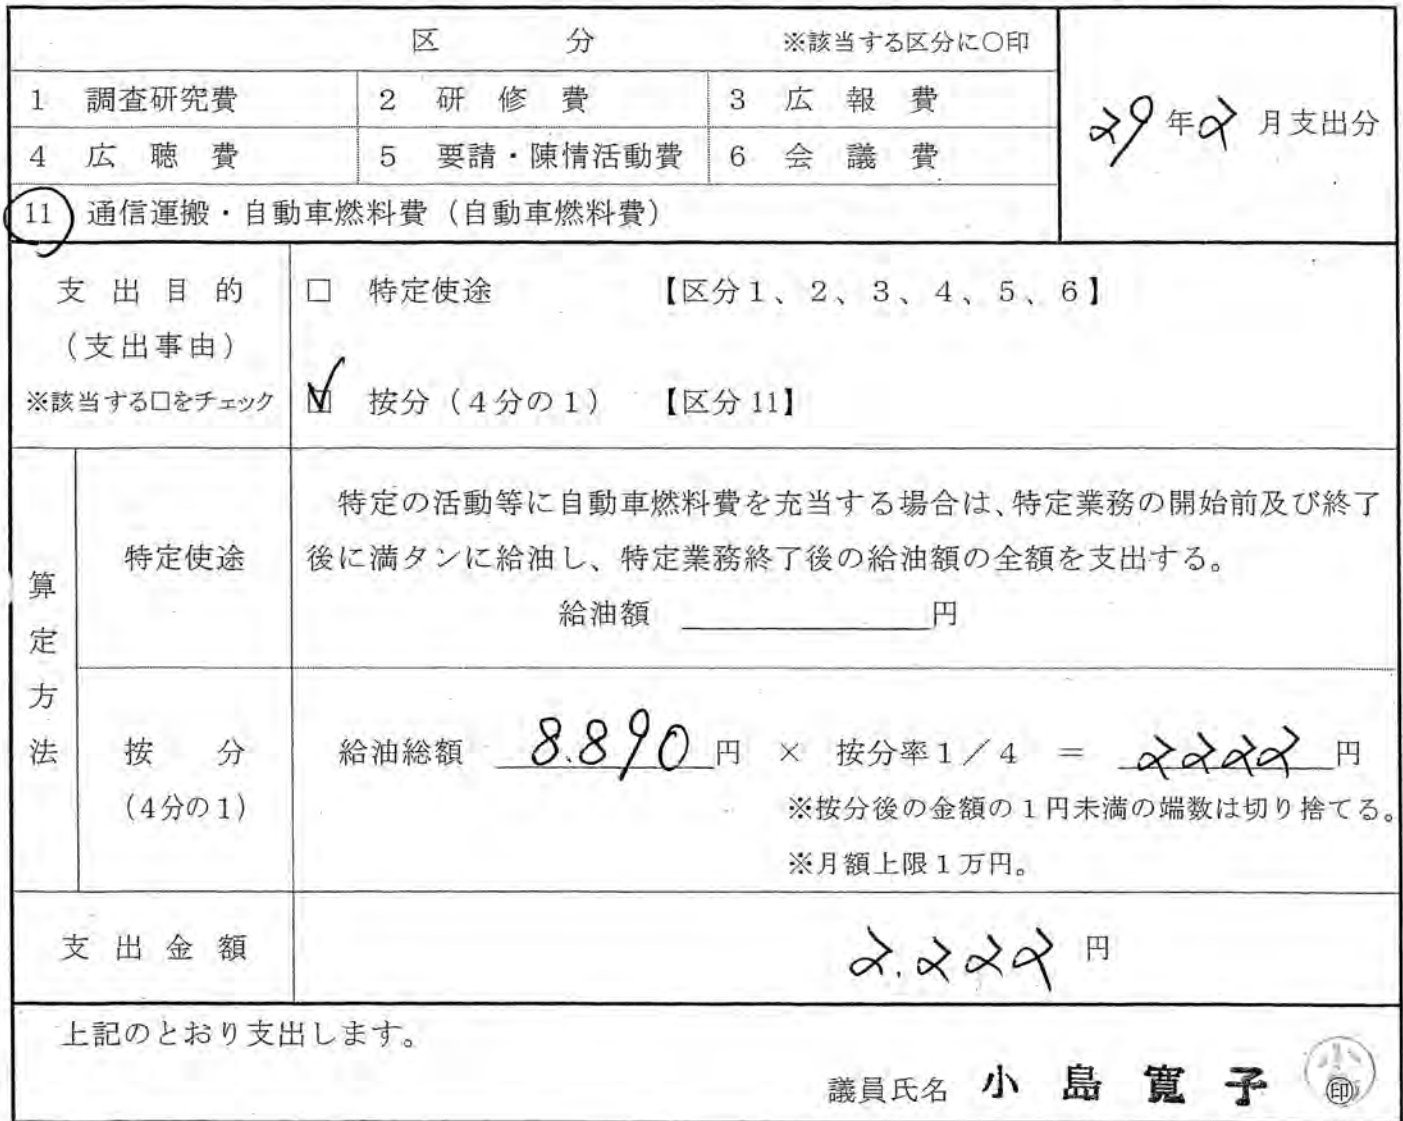 区 分 ※該当する区分に○印
1 調査研究費 2 研修費 3 広報費
29年2月支出分
4 広聴費 5 要請・陳情活動費 6 会議費
11 通信運搬・自動車燃料費（自動車燃料費）
支出目的 □ 特定使途 【区分1、2、3、4、5、6】
（支出事由）
※該当する□をチェック ☑ 按分（4分の1） 【区分11】
算定方法
特定使途
特定の活動等に自動車燃料費を充当する場合は、特定業務の開始前及び終了
後に満タンに給油し、特定業務終了後の給油額の全額を支出する。
給油額 円
按分 給油総額 8.890円 × 按分率1／4 = 2222円
（4分の1） ※按分後の金額の1円未満の端数は切り捨てる。
※月額上限1万円。
支出金額 2.222円
上記のとおり支出します。
議員氏名 小島寛子 ㊞